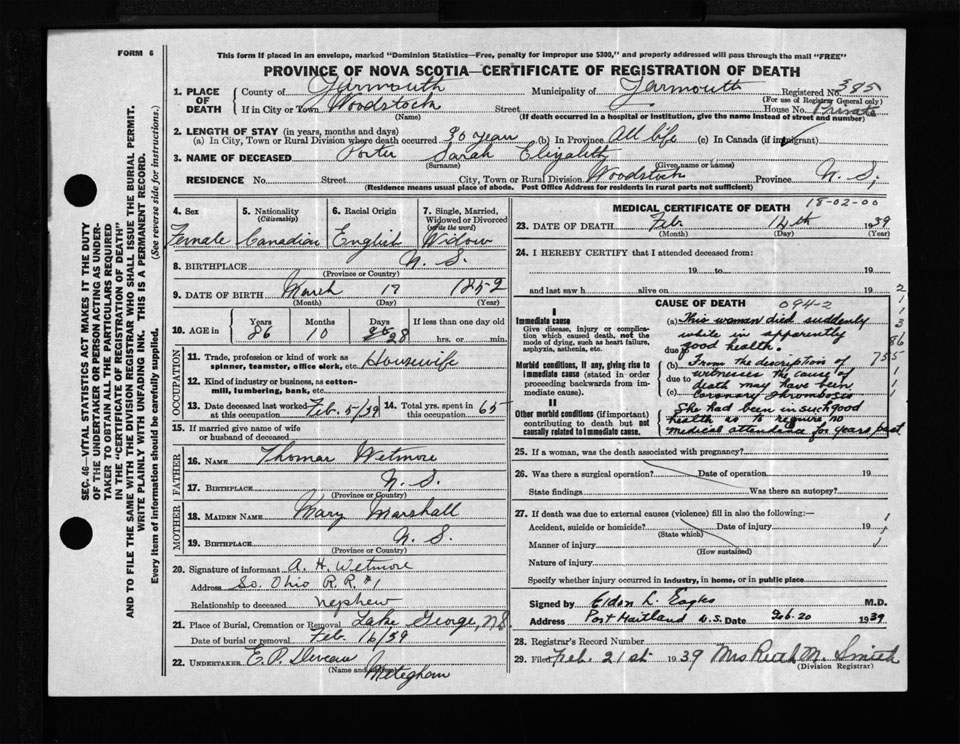 FORM 6
This form if placed in an envelope, marked "Dominion Statistics—Free, penalty for improper use $300," and properly addressed will pass through the mail "FREE"
PROVINCE OF NOVA SCOTIA—CERTIFICATE OF REGISTRATION OF DEATH
SEC. 46—VITAL STATISTICS ACT MAKES IT THE DUTY
OF THE UNDERTAKER OR PERSON ACTING AS UNDER-
TAKER TO OBTAIN ALL THE PARTICULARS REQUIRED
IN THE "CERTIFICATE OF REGISTRATION OF DEATH"
AND TO FILE THE SAME WITH THE DIVISION REGISTRAR WHO SHALL ISSUE THE BURIAL PERMIT.
WRITE PLAINLY WITH UNFADING INK. THIS IS A PERMANENT RECORD.
Every item of information should be carefully supplied. (See reverse side for instructions.)
1. PLACE OF DEATH
County of Yarmouth Municipality of Yarmouth Registered No. 385
(For use of Registrar General only)
If in City or Town Woodstock Street House No. Private
(Name) (If death occurred in a hospital or institution, give the name instead of street and number)
2. LENGTH OF STAY (in years, months and days)
(a) In City, Town or Rural Division where death occurred 30 years (b) In Province All life (c) In Canada (if immigrant)
3. NAME OF DECEASED Porter Sarah Elizabeth
(Surname) (Given name or names)
RESIDENCE No. Street City, Town or Rural Division Woodstock Province N. S.
(Residence means usual place of abode. Post Office Address for residents in rural parts not sufficient)
4. Sex Female
5. Nationality (Citizenship) Canadian
6. Racial Origin English
7. Single, Married, Widowed or Divorced (write the word) Widow
8. BIRTHPLACE N. S.
(Province or Country)
9. DATE OF BIRTH March 17 1852
(Month) (Day) (Year)
10. AGE in Years Months Days If less than one day old
86 10 28 hrs. or min.
OCCUPATION
11. Trade, profession or kind of work as spinner, teamster, office clerk, etc. Housewife
12. Kind of industry or business, as cotton-mill, lumbering, bank, etc.
13. Date deceased last worked at this occupation Feb. 5/39 14. Total yrs. spent in this occupation 65
15. If married give name of wife or husband of deceased
FATHER
16. NAME Thomas Wetmore
17. BIRTHPLACE N. S.
(Province or Country)
MOTHER
18. MAIDEN NAME Mary Marshall
19. BIRTHPLACE N. S.
(Province or Country)
20. Signature of informant A. H. Wetmore
Address So. Ohio R. R. #1
Relationship to deceased nephew
21. Place of Burial, Cremation or Removal Lake George, NS
Date of burial or removal Feb. 16/39
22. UNDERTAKER E. P. Deveau
(Name and address)
Meteghan
MEDICAL CERTIFICATE OF DEATH 18-02-00
23. DATE OF DEATH Feb 14th 1939
(Month) (Day) (Year)
24. I HEREBY CERTIFY that I attended deceased from:
19 to 19
and last saw h alive on 19
CAUSE OF DEATH 094-2
I
Immediate cause
Give disease, injury or complication which caused death, not the mode of dying, such as heart failure, asphyxia, asthenia, etc.
(a) This woman died suddenly
while in apparently
due to good health.
Morbid conditions, if any, giving rise to immediate cause (stated in order proceeding backwards from immediate cause).
(b) From the description of
due to witnesses the cause of
death may have been
(c) Coronary Thrombosis
II
Other morbid conditions (if important) contributing to death but not causally related to immediate cause.
She had been in such good
health as to require no
medical attendance for years past
25. If a woman, was the death associated with pregnancy?
26. Was there a surgical operation? Date of operation 19
State findings Was there an autopsy?
27. If death was due to external causes (violence) fill in also the following:—
Accident, suicide or homicide? Date of injury 19
(State which)
Manner of injury
(How sustained)
Nature of injury
Specify whether injury occurred in industry, in home, or in public place
Signed by Eldon L. Eagles M.D.
Address Port Maitland N.S. Date Feb. 20 1939
28. Registrar's Record Number
29. Filed Feb. 21st 1939 Mrs Ruth M. Smith
(Division Registrar)